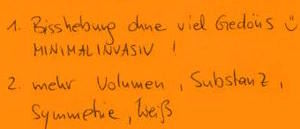 1. Bisshebung ohne viel Gedöns ☺
MINIMALINVASIV !
2. mehr Volumen, Substanz,
Symmetrie, Weiß